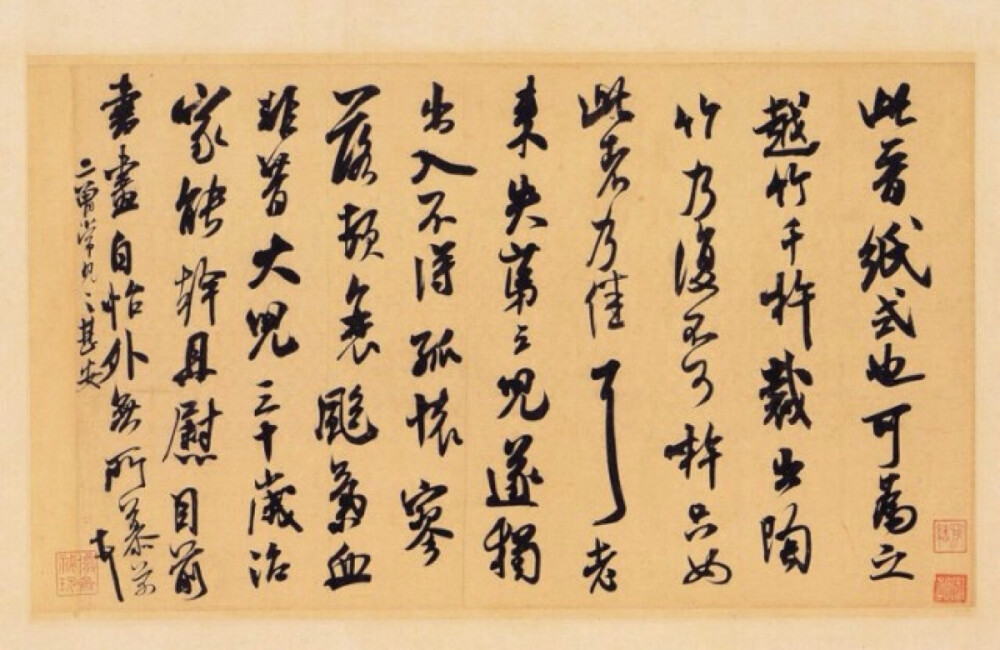 此晉紙式也可為之
越竹千杵裁出陶
竹乃復不可杵只如
此者乃佳耳老
來失第三兒遂獨
出入不得孤懷寥
落頓衰颯氣血
非昔大兒三十歲治
家能幹且慰目前
書畫自怡外無所慕芾
二曾常見之甚安